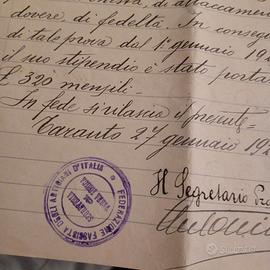 di attaccamento
dovere di fedeltà. In conseg
di tale prova dal 1° gennaio 19
il suo stipendio è stato porta
£ 320 mensili.
In fede si rilascia il presente
Taranto 27 gennaio 19
Il Segretario
FEDERAZIONE FASCISTA DEGLI ARTIGIANI D'ITALIA